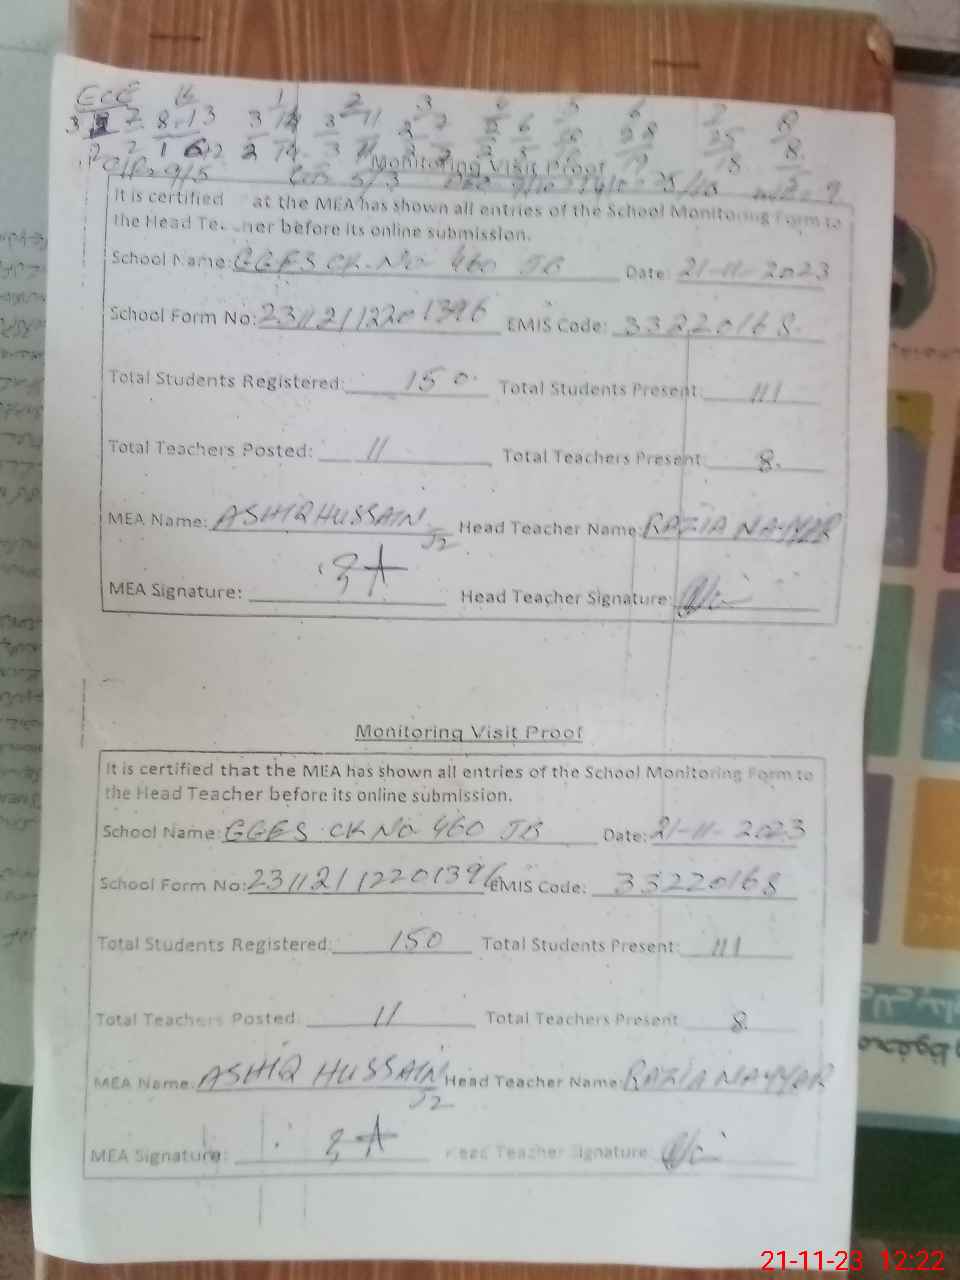 ECE
Monitoring Visit Proof
It is certified at the MEA has shown all entries of the School Monitoring Form to
the Head Teacher before its online submission.
School Name: GGES CK. No 460 JB Date: 21-11-2023
School Form No: 231121122201396 EMIS Code: 33220168.
Total Students Registered: 150. Total Students Present: 111
Total Teachers Posted: 11 Total Teachers Present: 8.
MEA Name: ASHIQ HUSSAIN J2 Head Teacher Name: RAZIA NAYYAR
MEA Signature: Head Teacher Signature:
Monitoring Visit Proof
It is certified that the MEA has shown all entries of the School Monitoring Form to
the Head Teacher before its online submission.
School Name: GGES CK No 460 JB Date: 21-11-2023
School Form No: 23112112201396 EMIS Code: 33220168
Total Students Registered: 150 Total Students Present: 111
Total Teachers Posted: 11 Total Teachers Present 8.
MEA Name: ASHIQ HUSSAIN J2 Head Teacher Name: RAZIA NAYYAR
MEA Signature: Head Teacher Signature:
21-11-23 12:22